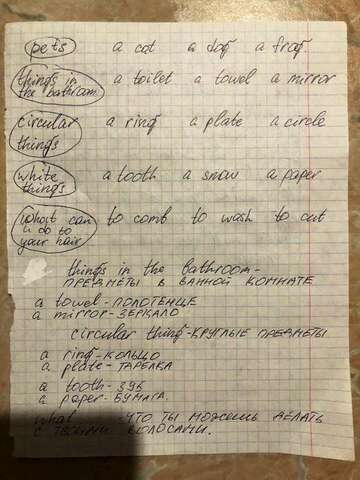 pets a cat a dog a frog
things in a toilet a towel a mirror
the bathroom
circular a ring a plate a circle
things
white a tooth a snow a paper
things
what can to comb to wash to cut
u do to
your hair
things in the bathroom-
ПРЕДМЕТЫ В ВАННОЙ КОМНАТЕ
a towel-ПОЛОТЕНЦЕ
a mirror-ЗЕРКАЛО
circular thing-КРУГЛЫЕ ПРЕДМЕТЫ
a ring-КОЛЬЦО
a plate-ТАРЕЛКА
a tooth-ЗУБ
a paper-БУМАГА.
what -ЧТО ТЫ МОЖЕШЬ ДЕЛАТЬ
С ТВОИМИ ВОЛОСАМИ.